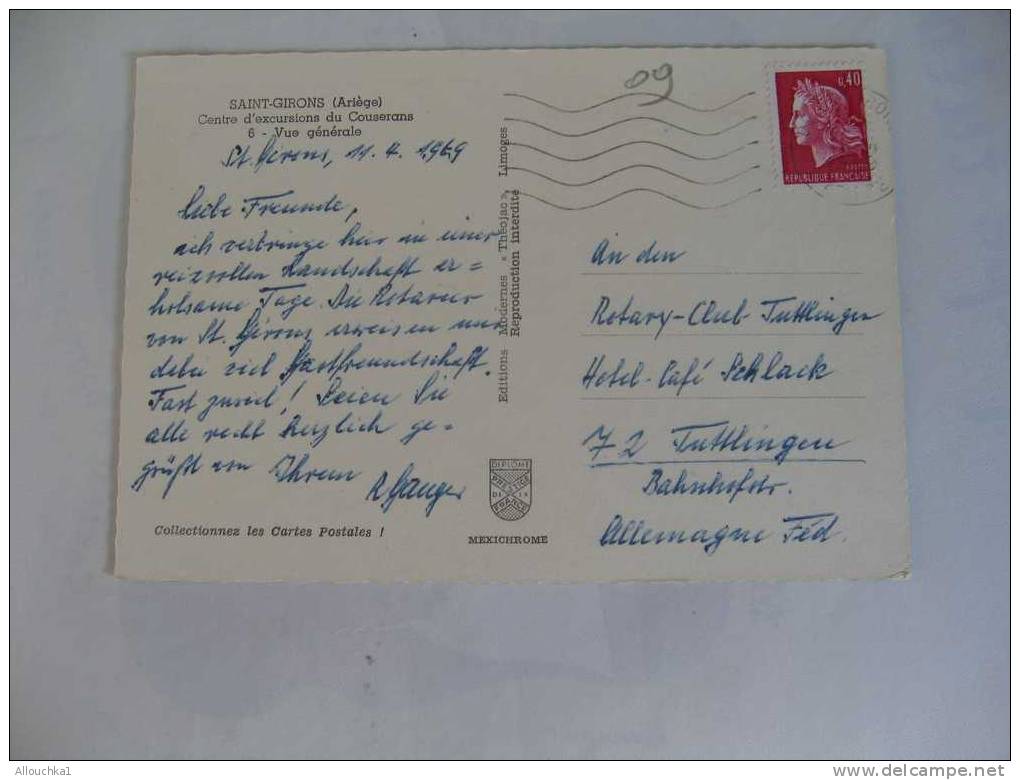 SAINT-GIRONS (Ariège)
Centre d'excursions du Couserans
6 - Vue générale
St. Girons, 11. 4. 1969
Liebe Freunde,
ich verbringe hier in einer
reizvollen Landschaft er=
holsame Tage. Die Rotarier
von St. Girons erweisen mir
dabei viel Gastfreundschaft.
Fast zuviel! Seien Sie
alle recht herzlich ge=
grüßt von Ihrem
Collectionnez les Cartes Postales !
Editions Modernes « Théojac », Limoges
Reproduction interdite
DIPLOME
PRESTIGE
DE LA
FRANCE
MEXICHROME
09
0,40
REPUBLIQUE FRANÇAISE
An den
Rotary-Club Tuttlingen
Hotel-Café Schlack
72 Tuttlingen
Bahnhofstr.
Allemagne Féd.
Allouchka1
http://www.delcampe.net